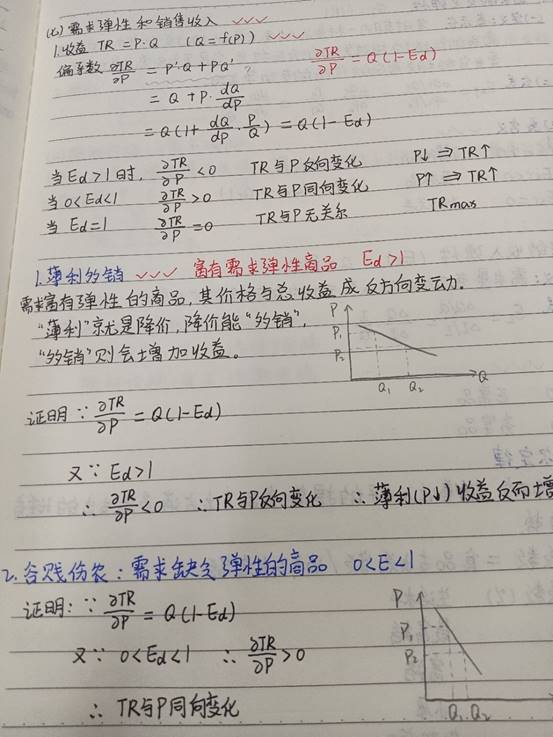 (七) 需求弹性和销售收入 ✓✓✓
1.收益 TR = P·Q (Q = f(P)) ✓✓✓
偏系数 ∂TR/∂P = P'·Q + PQ' ? ∂TR/∂P = Q(1-Ed)
= Q + P·dQ/dP
= Q(1 + dQ/dP · P/Q) = Q(1-Ed)
当Ed>1时, ∂TR/∂P <0 TR与P反向变化 P↓ ⇒ TR↑
当 0<Ed<1 ∂TR/∂P >0 TR与P同向变化 P↑ ⇒ TR↑
当 Ed=1 ∂TR/∂P =0 TR与P无关系 TRmax
1.薄利多销 ✓✓✓ 富有需求弹性商品 Ed>1
需求富有弹性的商品,其价格与总收益成反方向变动.
"薄利"就是降价,降价能"多销",
"多销"则会增加收益。
P
P₁
P₂
Q₁ Q₂ Q
证明 ∵ ∂TR/∂P = Q(1-Ed)
又∵ Ed>1
∴ ∂TR/∂P <0 ∴ TR与P反向变化 ∴ 薄利(P↓)收益反而增
2.谷贱伤农:需求缺乏弹性的商品 0<E<1
证明: ∵ ∂TR/∂P = Q(1-Ed)
又∵ 0<Ed<1 ∴ ∂TR/∂P >0
∴ TR与P同向变化
P
P₁
P₂
Q₁ Q₂